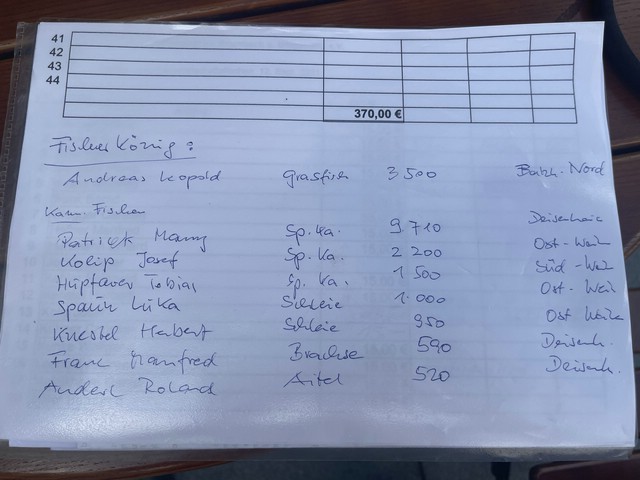 41
42
43
44
370,00 €
Fischerkönig:
Andreas Leopold Grasfisch 3 500 Batzh.-Nord
Kam. Fischer
Patrick Manny Sp.Ka. 9 710 Deisenh
Kolip Josef Sp. Ka. 2 200 Ost-Weih
Hüpfauer Tobias Sp. Ka. 1 500 Süd-Weih
Spann Luka Schleie 1.000 Ost-Weih
Knestel Herbert Schleie 950 Ost Weih
Frank Manfred Brachse 590 Deisenh.
Anderl Roland Aitel 520 Deisenh.